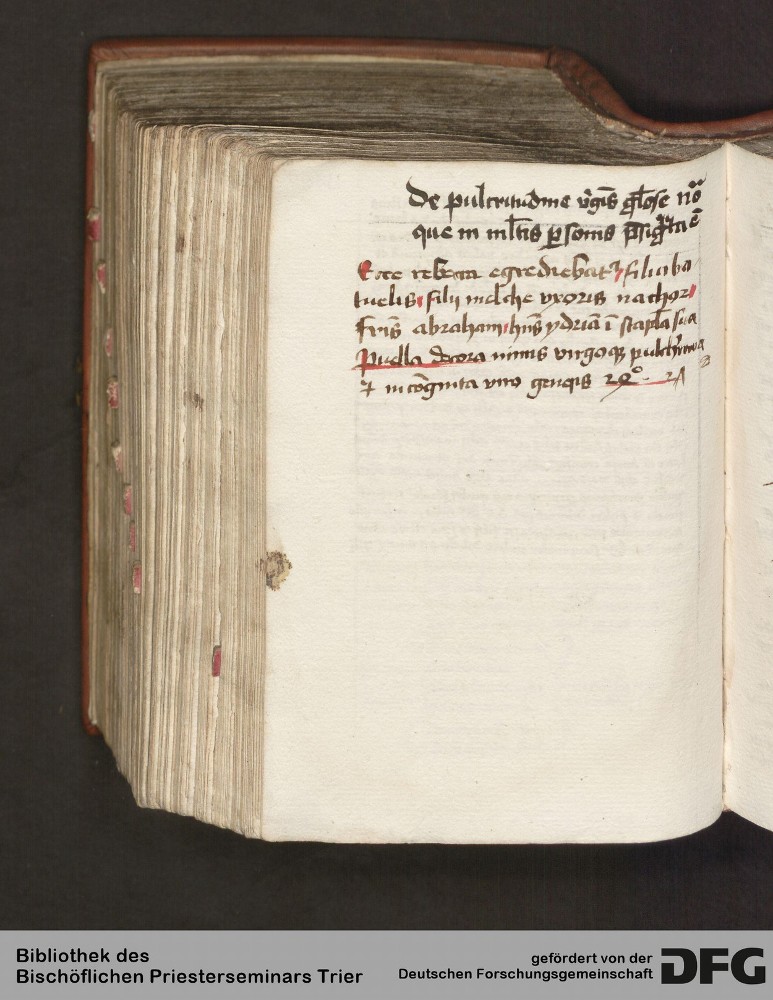 De pulcritudine v̄gīs gl̄ose
que in ml̄tis ꝑsonis
Ecce rebecca egrediebat᷑ filia ba
tuelis filij melche vxoris nachor
fr̄is abraham hn̄s ydriā ī scapl̄a sua
Puella decora nimis virgoqꝫ
⁊ incōgnita viro geneqis 2Qͦ
Bibliothek des
Bischöflichen Priesterseminars Trier
gefördert von der
Deutschen Forschungsgemeinschaft
DFG